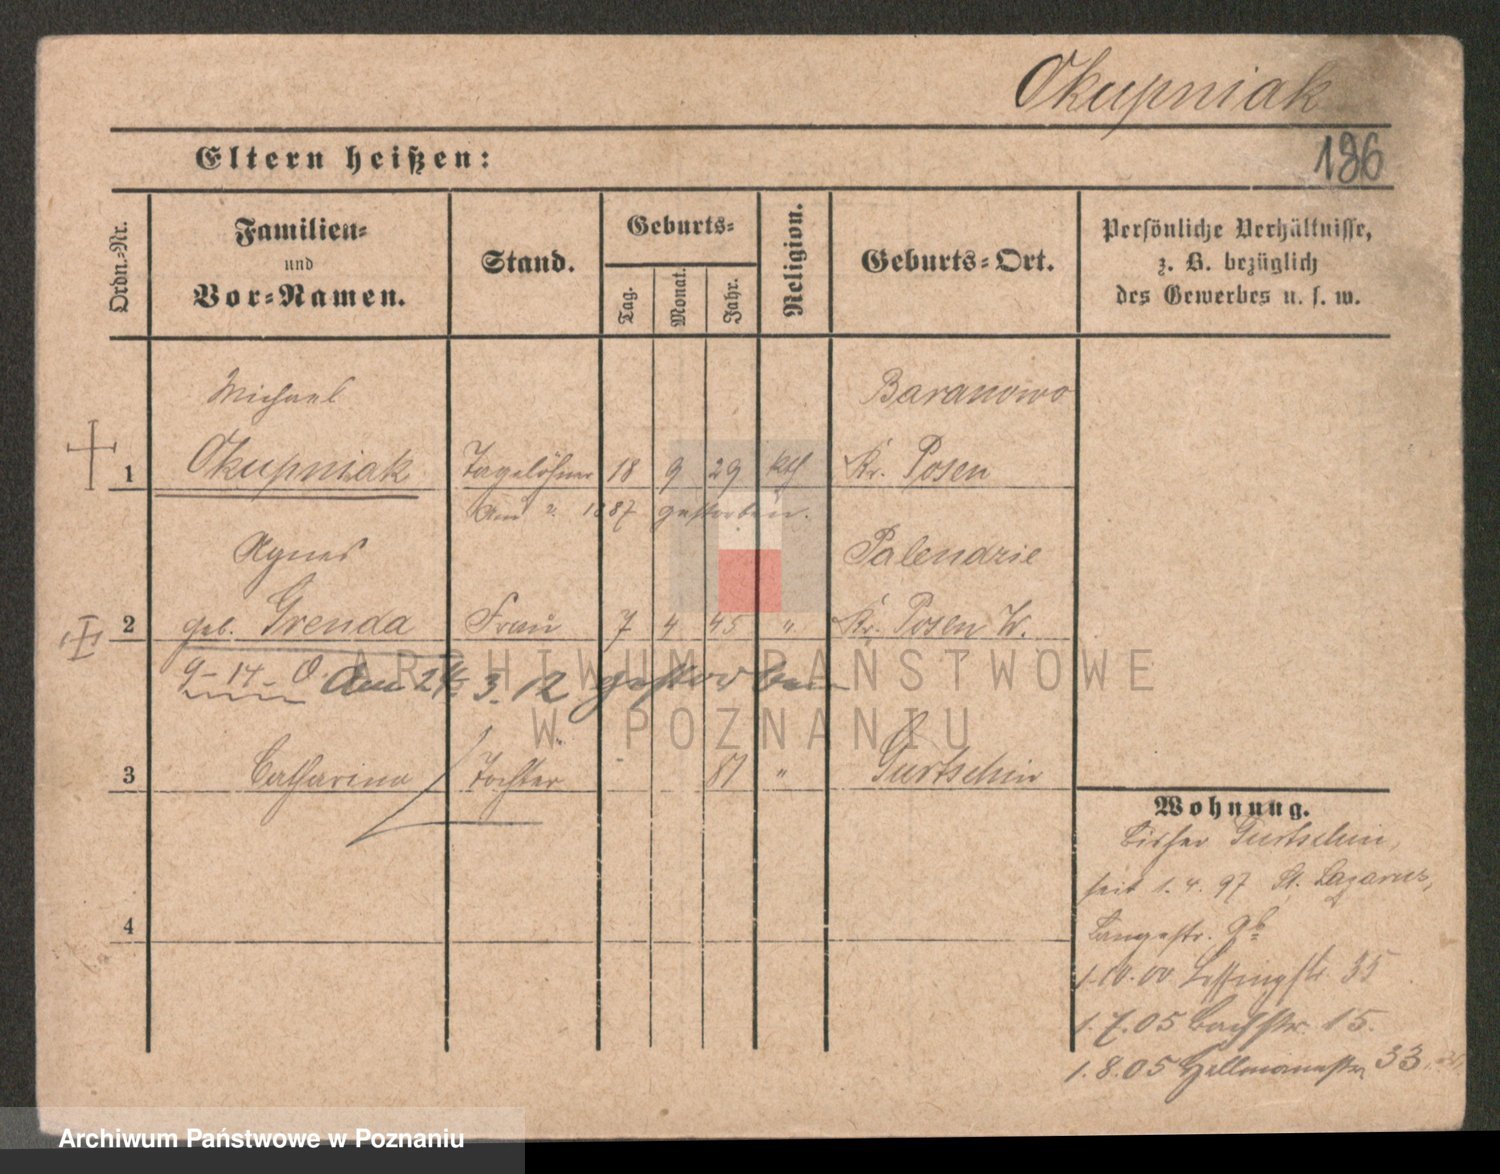 Okupniak
Eltern heißen:
186
Ordn.-Nr.
Familien-
und
Vor-Namen.
Stand.
Geburts-
Tag.
Monat.
Jahr.
Religion.
Geburts-Ort.
Persönliche Verhältnisse,
z. B. bezüglich
des Gewerbes u. s. w.
Michael Baranowo
1 Okupniak Tagelöhner 18 9 29 kth Kr. Posen
Am 1887 gestorben.
Agnes Palendzie
2 geb. Grenda Frau 7 4 45 " Kr. Posen W.
9-14-0 Am 3. 12 gestorben
3 Catharina Tochter 81 " Gurtschin
4
Wohnung.
bisher Gurtschin,
seit 1. 4. 97 St. Lazarus,
Langestr. 9b
1.10.00 Lessingstr. 35
1.7.05 Bachstr. 15.
1.8.05 Hellmannstr. 33
ARCHIWUM PAŃSTWOWE
W POZNANIU
Archiwum Państwowe w Poznaniu